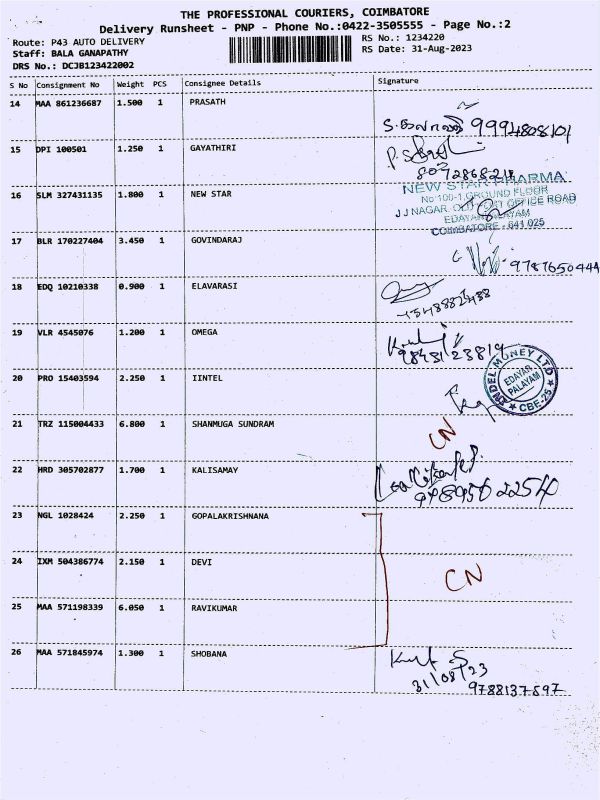 THE PROFESSIONAL COURIERS, COIMBATORE
Delivery Runsheet - PNP - Phone No.:0422-3505555 - Page No.:2
Route: P43 AUTO DELIVERY
Staff: BALA GANAPATHY
DRS No.: DCJB123422002
RS No.: 1234220
RS Date: 31-Aug-2023
S No Consignment No Weight PCS Consignee Details Signature
14 MAA 861236687 1.500 1 PRASATH
9994808101
15 DPI 100501 1.250 1 GAYATHIRI
16 SLM 327431135 1.800 1 NEW STAR
NEW STAR PHARMA
No 100-1, GROUND FLOOR
J J NAGAR, OLD POST OFFICE ROAD
EDAYARPALAYAM
COIMBATORE - 641 025
17 BLR 170227404 3.450 1 GOVINDARAJ
18 EDQ 10210338 0.900 1 ELAVARASI
19 VLR 4545076 1.200 1 OMEGA
9843123819
20 PRO 15403594 2.250 1 IINTEL
INDEL MONEY LTD
EDAYAR
PALAYAM
CBE-25
21 TRZ 115004433 6.800 1 SHANMUGA SUNDRAM
CN
22 HRD 305702877 1.700 1 KALISAMAY
23 NGL 1028424 2.250 1 GOPALAKRISHNANA
24 IXM 504386774 2.150 1 DEVI
CN
25 MAA 571198339 6.050 1 RAVIKUMAR
26 MAA 571845974 1.300 1 SHOBANA
31/08/23
9788137597